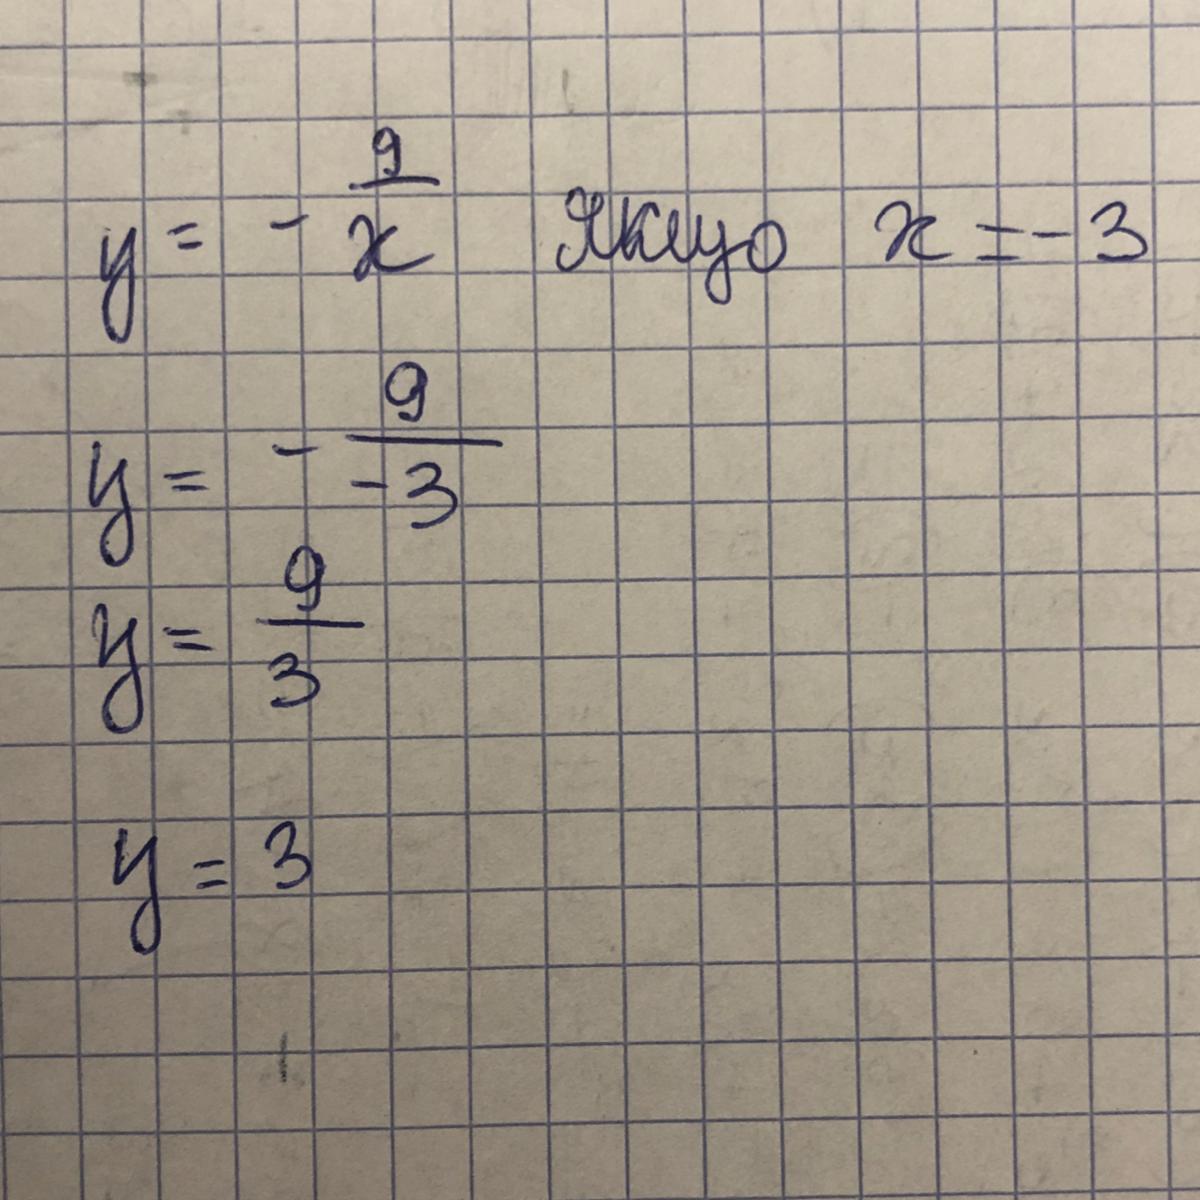 y = - 9/x якщо x = - 3
y = - 9/-3
y = 9/3
y = 3